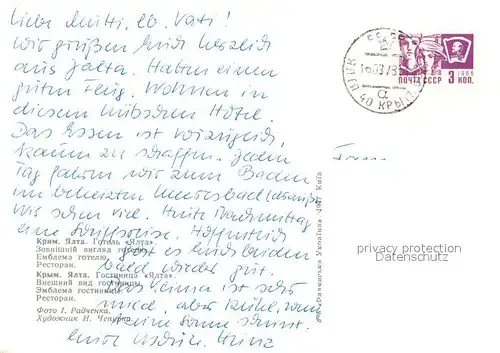 Liebe Mutti, lb. Vati!
Wir grüßen Euch herzlich
aus Jalta. Hatten einen
guten Flug. Wohnen in
diesem hübschen Hotel.
Das Essen ist vorzüglich,
kaum zu schaffen. Jeden
Tag gehen wir zum Baden
im beheizten Meeresbad
Wir sehen viel. Heute Nachmittag
eine Schiffsreise. Hoffentlich
geht es Euch beiden
bald wieder gut.
Das Klima ist sehr
mild, aber kühl, wenn
keine Sonne scheint.
Eure Heinz
Крим. Ялта. Готель „Ялта".
Зовнішній вигляд готелю.
Емблема готелю.
Ресторан.
Крым. Ялта. Гостиница «Ялта».
Внешний вид гостиницы.
Эмблема гостиницы.
Ресторан.
Фото І. Радченка.
Художник Н. Чепурна
«Радянська Україна». Київ
ПОЧТА СССР 3 КОП.
1966
ЯЛТА 40 КРЫМ
privacy protection
Datenschutz